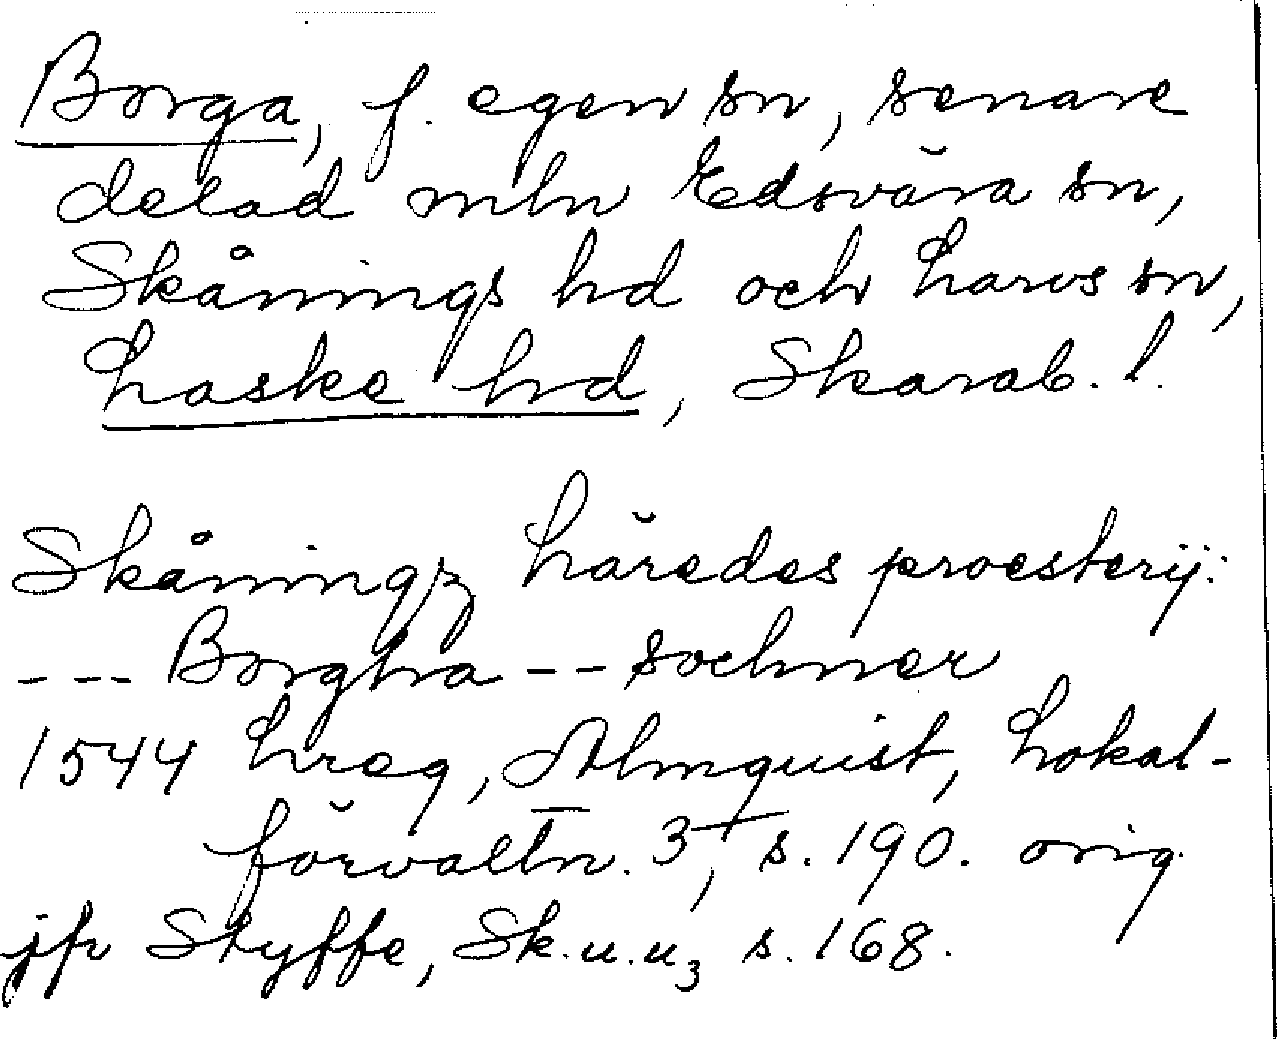 Borga, f. egen sn, senare
delad mln Edsvära sn,
Skånings hd och Larvs sn,
Laske hd, Skarab. l.
Skåningz häredes proesterij:
--- Borgha -- sochner
1544 Lreg, Almquist, Lokal-
förvaltn. 3, s. 190. orig
jfr Styffe, Sk.u.u₃ s. 168.